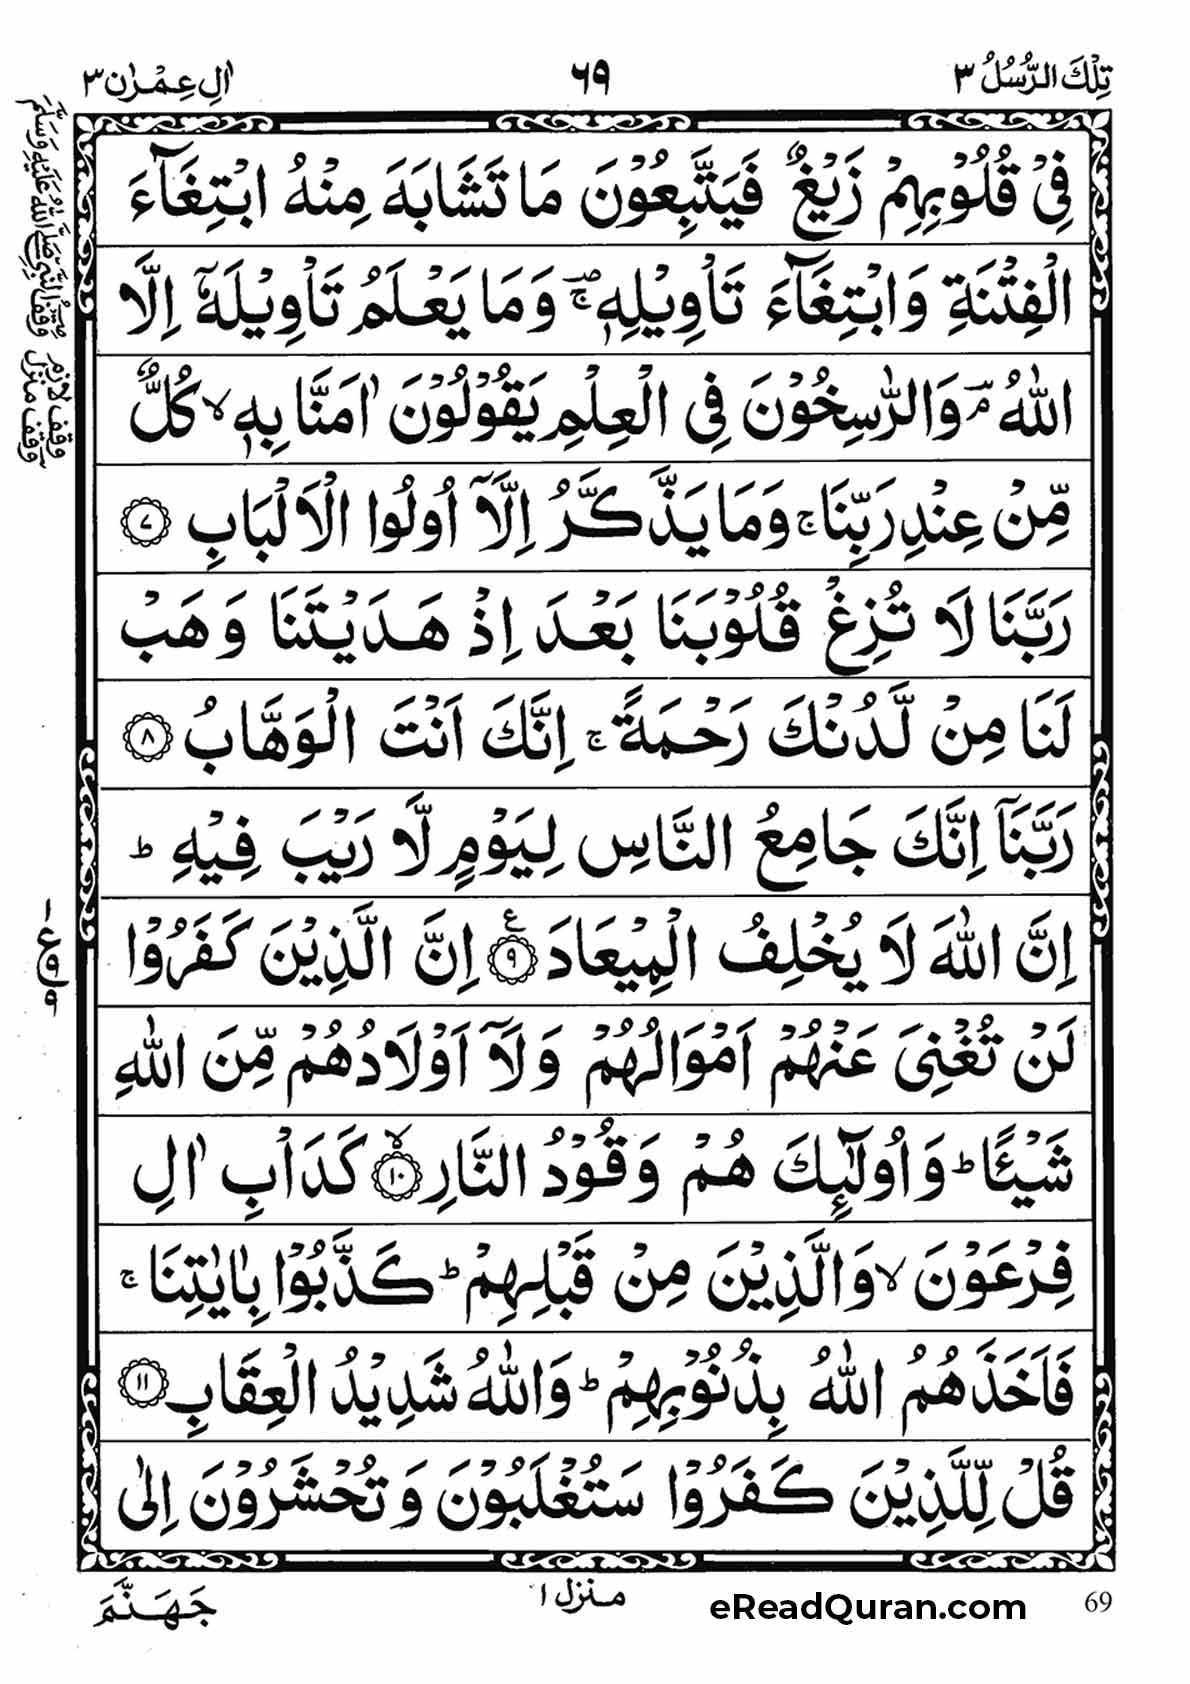 تِلْكَ الرُّسُلُ ٣
٦٩
اٰلِ عِمْرٰن ٣
فِیْ قُلُوْبِهِمْ زَیْغٌ فَیَتَّبِعُوْنَ مَا تَشَابَهَ مِنْهُ ابْتِغَآءَ
الْفِتْنَةِ وَابْتِغَآءَ تَاْوِیْلِهٖ ۚ وَمَا یَعْلَمُ تَاْوِیْلَهٗۤ اِلَّا
اللّٰهُ ۘ وَالرّٰسِخُوْنَ فِی الْعِلْمِ یَقُوْلُوْنَ اٰمَنَّا بِهٖ ۙ كُلٌّ
مِّنْ عِنْدِ رَبِّنَا ۚ وَمَا یَذَّكَّرُ اِلَّاۤ اُولُوا الْاَلْبَابِ ۝٧
رَبَّنَا لَا تُزِغْ قُلُوْبَنَا بَعْدَ اِذْ هَدَیْتَنَا وَهَبْ
لَنَا مِنْ لَّدُنْكَ رَحْمَةً ۚ اِنَّكَ اَنْتَ الْوَهَّابُ ۝٨
رَبَّنَاۤ اِنَّكَ جَامِعُ النَّاسِ لِیَوْمٍ لَّا رَیْبَ فِیْهِ ؕ
اِنَّ اللّٰهَ لَا یُخْلِفُ الْمِیْعَادَ ۝٩ ع اِنَّ الَّذِیْنَ كَفَرُوْا
لَنْ تُغْنِیَ عَنْهُمْ اَمْوَالُهُمْ وَلَاۤ اَوْلَادُهُمْ مِّنَ اللّٰهِ
شَیْـًٔا ؕ وَاُولٰٓئِكَ هُمْ وَقُوْدُ النَّارِ ۝١٠ ۙ كَدَاْبِ اٰلِ
فِرْعَوْنَ ۙ وَالَّذِیْنَ مِنْ قَبْلِهِمْ ؕ كَذَّبُوْا بِاٰیٰتِنَا ۚ
فَاَخَذَهُمُ اللّٰهُ بِذُنُوْبِهِمْ ؕ وَاللّٰهُ شَدِیْدُ الْعِقَابِ ۝١١
قُلْ لِّلَّذِیْنَ كَفَرُوْا سَتُغْلَبُوْنَ وَتُحْشَرُوْنَ اِلٰی
وقف النبی صَلَّی اللّٰهُ عَلَیْهِ وَسَلَّمَ
وقف لازم
وقف منزل
ع
٩
منزل ١
جَهَنَّمَ
eReadQuran.com
69